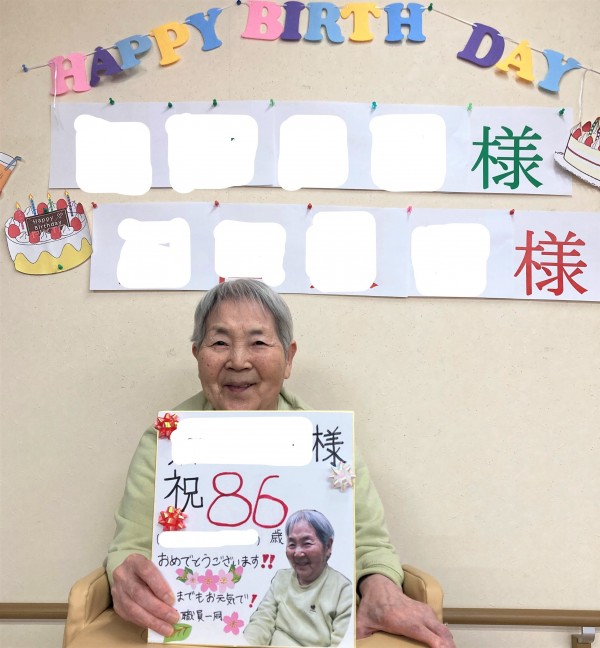 HAPPY BIRTH DAY
様
様
Happy Birthday
様
祝 86歳
おめでとうございます!!
までもお元気で!
職員一同